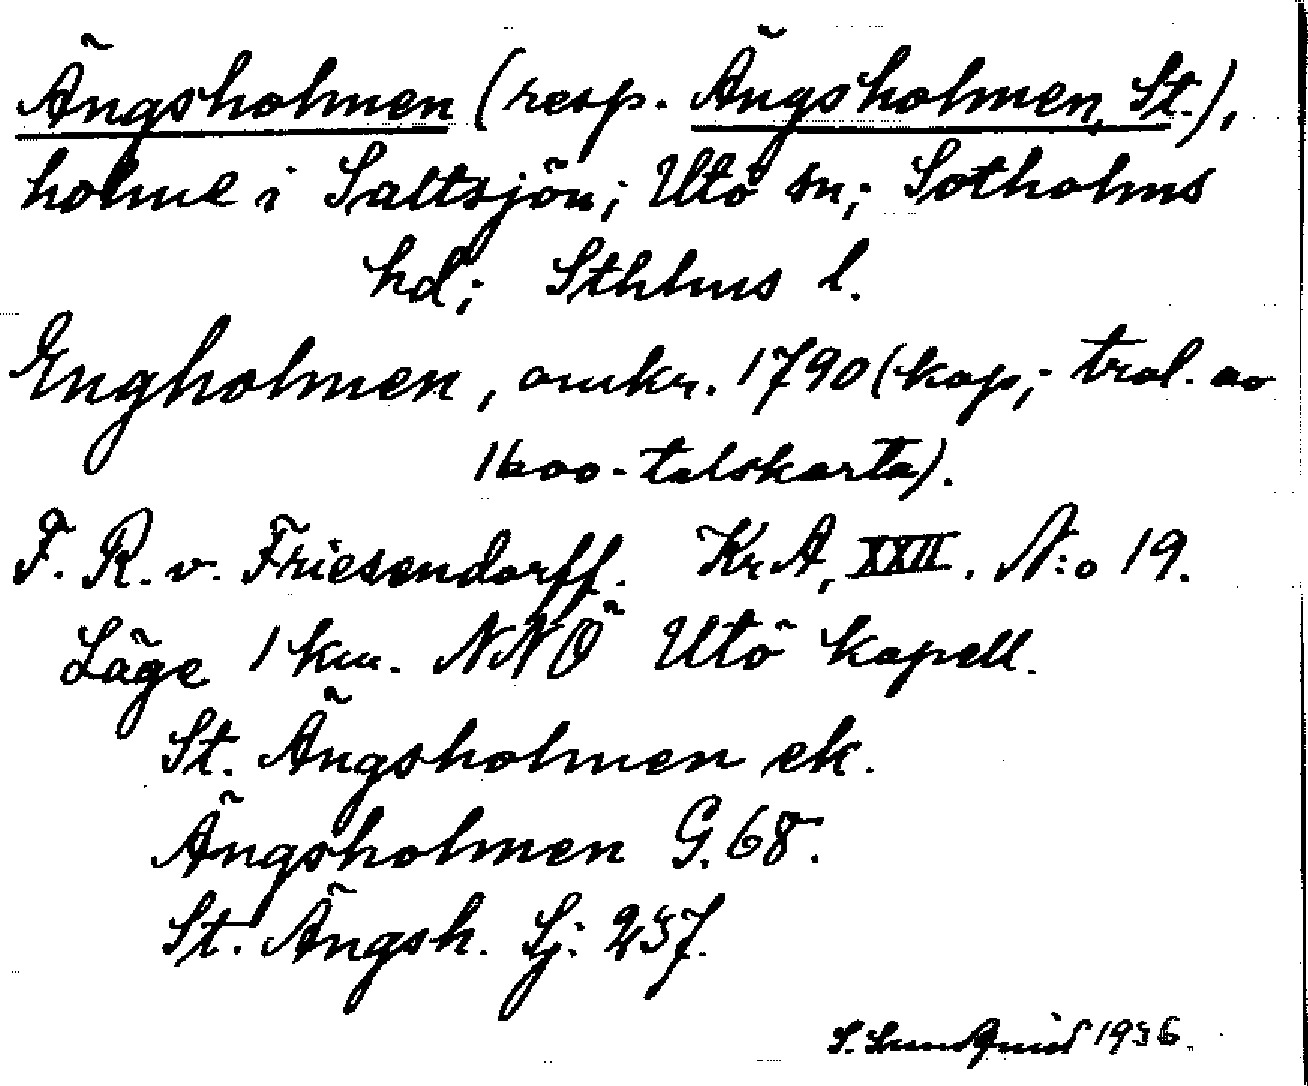 Ängsholmen (resp. Ängsholmen, St.),
holme i Saltsjön; Utö sn; Sotholms
hd; Sthlms l.
Engholmen, omkr. 1790 (kop; trol. av
1600-talskarta).
F. R. v. Friesendorff. KrA, XXII. N:o 19.
Läge 1 km. NNÖ Utö kapell.
St. Ängsholmen ek.
Ängsholmen G. 68.
St. Ängsh. Sj: 237.
S. Lundquist 1936.